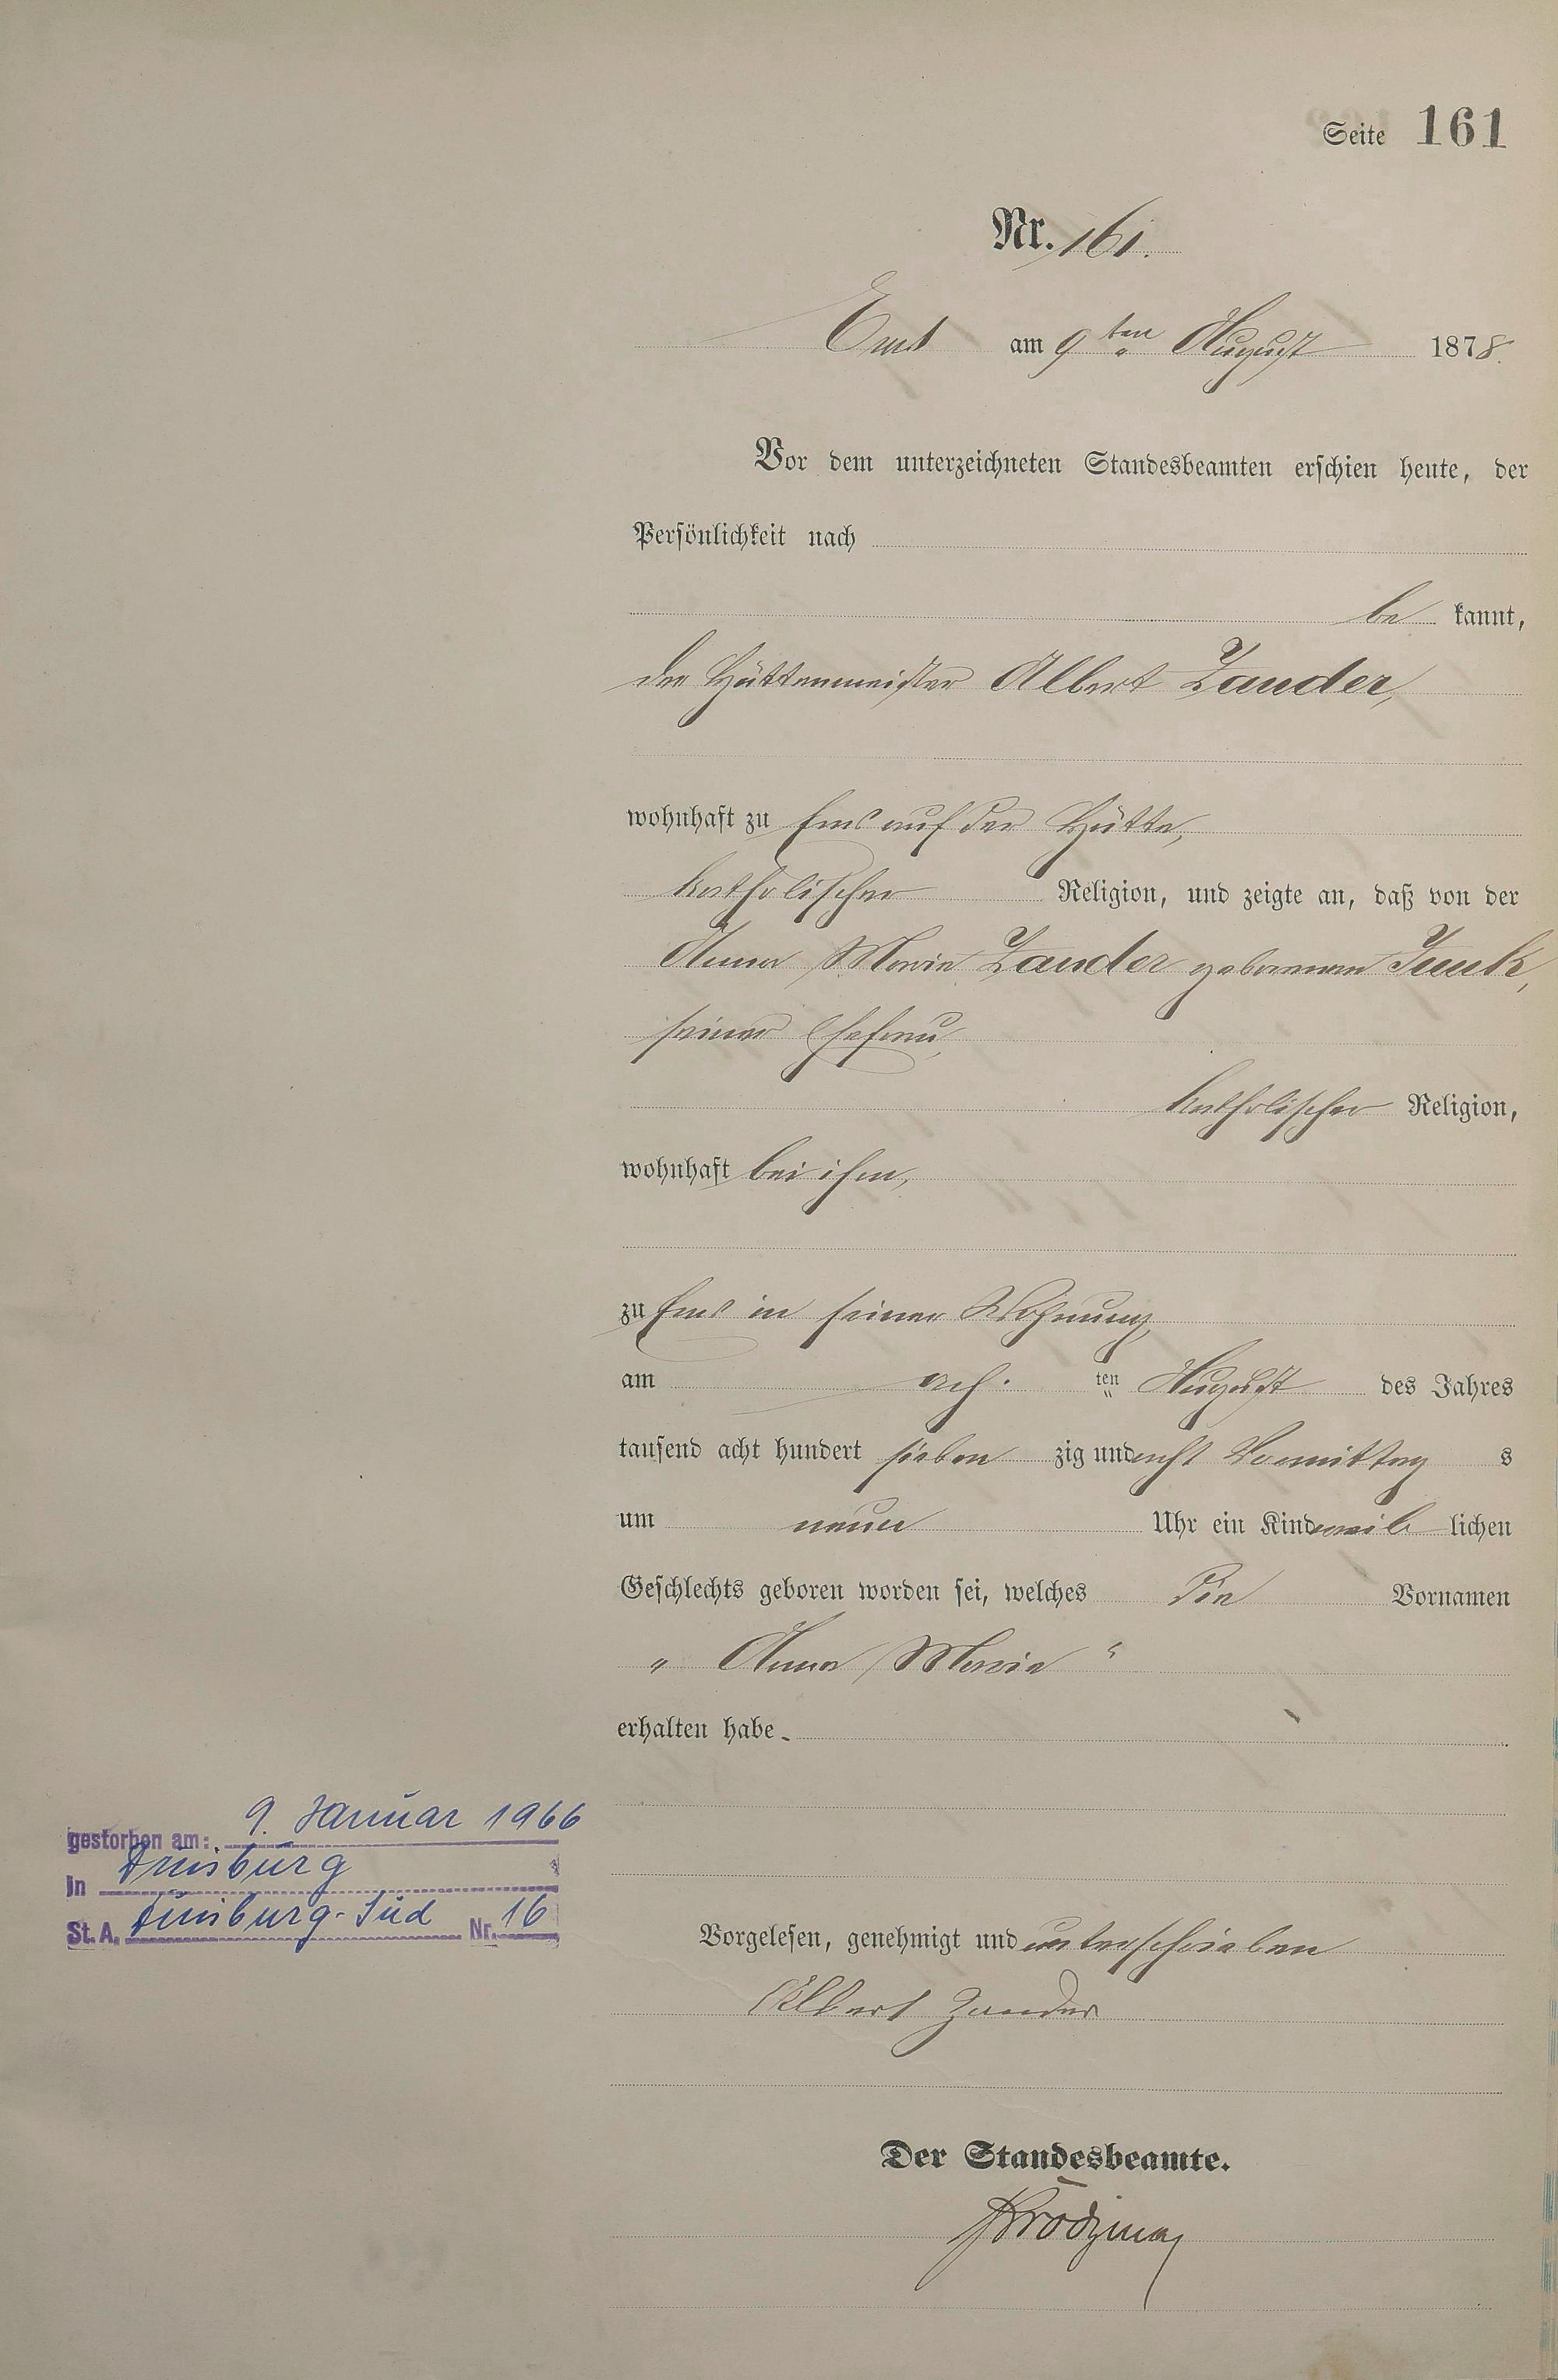 Seite 161
Nr. 161.
Ems am 9ten August 1878.
Vor dem unterzeichneten Standesbeamten erschien heute, der
Persönlichkeit nach
be kannt,
der Hüttenmeister Albert Zander,
wohnhaft zu Ems auf der Hütte,
katholischer Religion, und zeigte an, daß von der
Anna Maria Zander geborenen Junk,
seiner Ehefrau,
katholischer Religion,
wohnhaft bei ihm,
zu Ems in seiner Wohnung,
am ach. ten August des Jahres
tausend acht hundert sieben zig und acht Vormittag s
um neun Uhr ein Kind weib lichen
Geschlechts geboren worden sei, welches die Vornamen
„ Anna Maria “
erhalten habe.
gestorben am: 9. Januar 1966
in Duisburg
St. A. Duisburg-Süd Nr. 16
Vorgelesen, genehmigt und unterschrieben
Albert Zander
Der Standesbeamte.